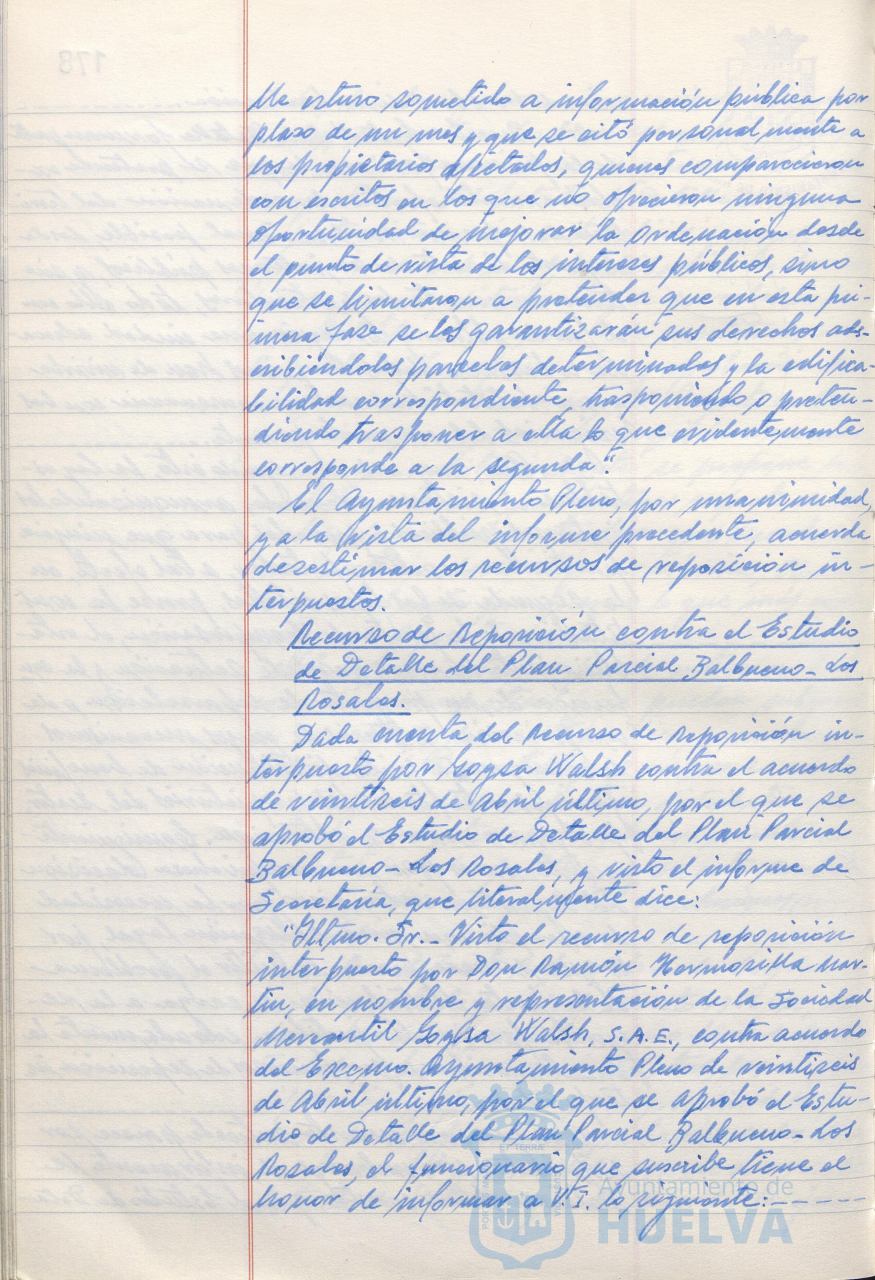 lle estuvo sometido a información pública por
plazo de un mes y que se citó personalmente a
los propietarios afectados, quienes comparecieron
con escritos en los que no ofrecieron ninguna
oportunidad de mejorar la Ordenación desde
el punto de vista de los intereses públicos, sino
que se limitaron a pretender que en esta pri-
mera fase se les garantizarán sus derechos ads-
cribiéndolos parcelas determinadas y la edifica-
bilidad correspondiente, trasponiendo o preten-
diendo trasponer a ella lo que evidentemente
corresponde a la segunda".
El Ayuntamiento Pleno, por unanimidad,
y a la vista del informe precedente, acuerda
desestimar los recursos de reposición in-
terpuestos.
Recurso de Reposición contra el Estudio
de Detalle del Plan Parcial Balbueno-Los
Rosales.
Dada cuenta del Recurso de Reposición in-
terpuesto por Goysa Walsh contra el acuerdo
de veintiseis de Abril último, por el que se
aprobó el Estudio de Detalle del Plan Parcial
Balbueno-Los Rosales, y visto el informe de
Secretaría, que literalmente dice:
"Iltmo. Sr.- Visto el recurso de reposición
interpuesto por Don Ramón Hermosilla Mar-
tin, en nombre y representación de la Sociedad
Mercantil Goysa Walsh, S.A.E., contra acuerdo
del Excmo. Ayuntamiento Pleno de veintiseis
de Abril último, por el que se aprobó el Estu-
dio de Detalle del Plan Parcial Balbueno-Los
Rosales, el funcionario que suscribe tiene el
honor de informar a V.I. lo siguiente:-----
Ayuntamiento de
HUELVA